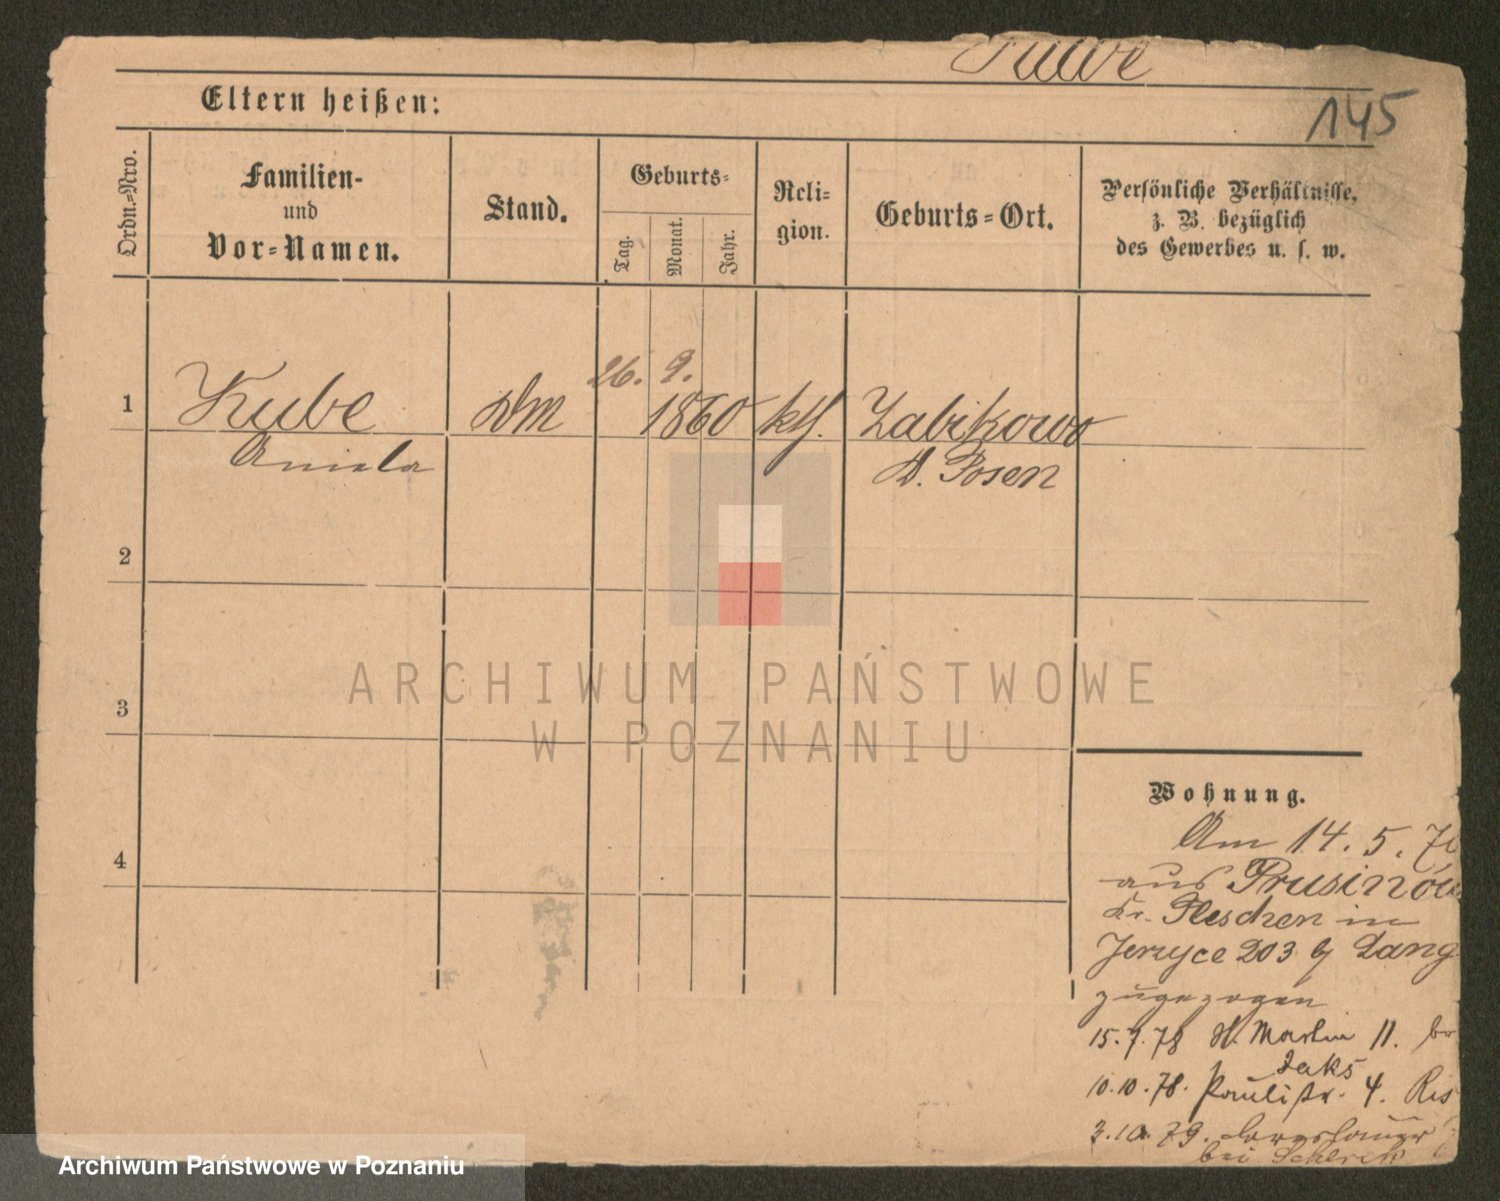 Kube
145
Eltern heißen:
Ordn.-Nro.
Familien-
und
Vor-Namen.
Stand.
Geburts-
Tag.
Monat.
Jahr.
Reli-
gion.
Geburts-Ort.
Persönliche Verhältnisse,
z. B. bezüglich
des Gewerbes u. s. w.
26. 9.
1 Kube DM 1860 kth. Zabikowo
Aniela Kr. Posen
2
3
4
ARCHIWUM PAŃSTWOWE
W POZNANIU
Wohnung.
Am 14. 5. 78
aus Prusinow
Kr. Pleschen in
Jerzyce 203 b/ Lang
zugezogen
15.7.78 St. Martin 11. b
Jaks
10.10.78. Paulistr. 4. Ris
3.10.79. Breslauer
bei Scherek
Archiwum Państwowe w Poznaniu